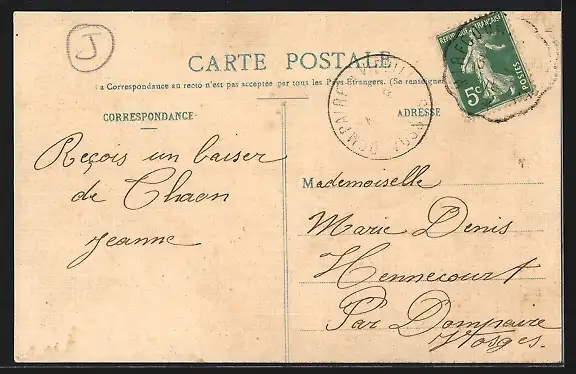 J
CARTE POSTALE
La Correspondance au recto n'est pas acceptée par tous les Pays Étrangers. (Se renseigner
CORRESPONDANCE
ADRESSE
REPUBLIQUE FRANÇAISE
POSTES
5c
Reçois un baiser
de Chaon
Jeanne
Mademoiselle
Marie Denis
Hennecourt
Par Dompaire
Vosges.